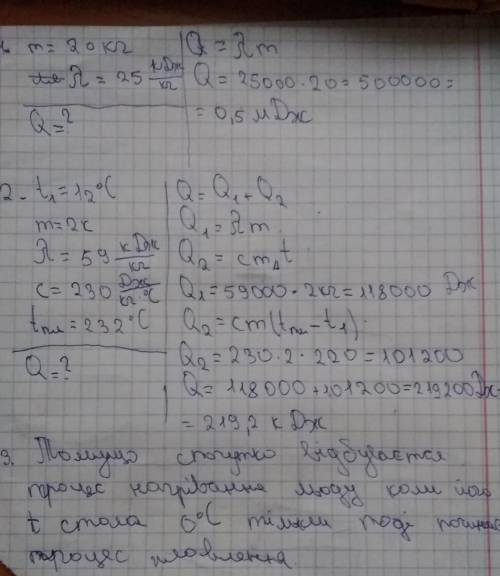 1. m = 20 кг
λ = 25 кДж/кг
Q = ?
Q = λm
Q = 25000 · 20 = 500000 =
= 0,5 мДж
2. t₁ = 12°C
m = 2к
λ = 59 кДж/кг
c = 230 Дж/кг °C
tпл = 232°C
Q = ?
Q = Q₁ + Q₂
Q₁ = λm
Q₂ = cm△t
Q₁ = 59000 · 2кг = 118000 Дж
Q₂ = cm(tпл - t₁)
Q₂ = 230 · 2 · 220 = 101200
Q = 118000 + 101200 = 219200 Дж
= 219,2 кДж
3. Тому що спочатку відбувається
процес нагрівання льоду коли його
t стала 0°C тільки тоді
процес плавлення.